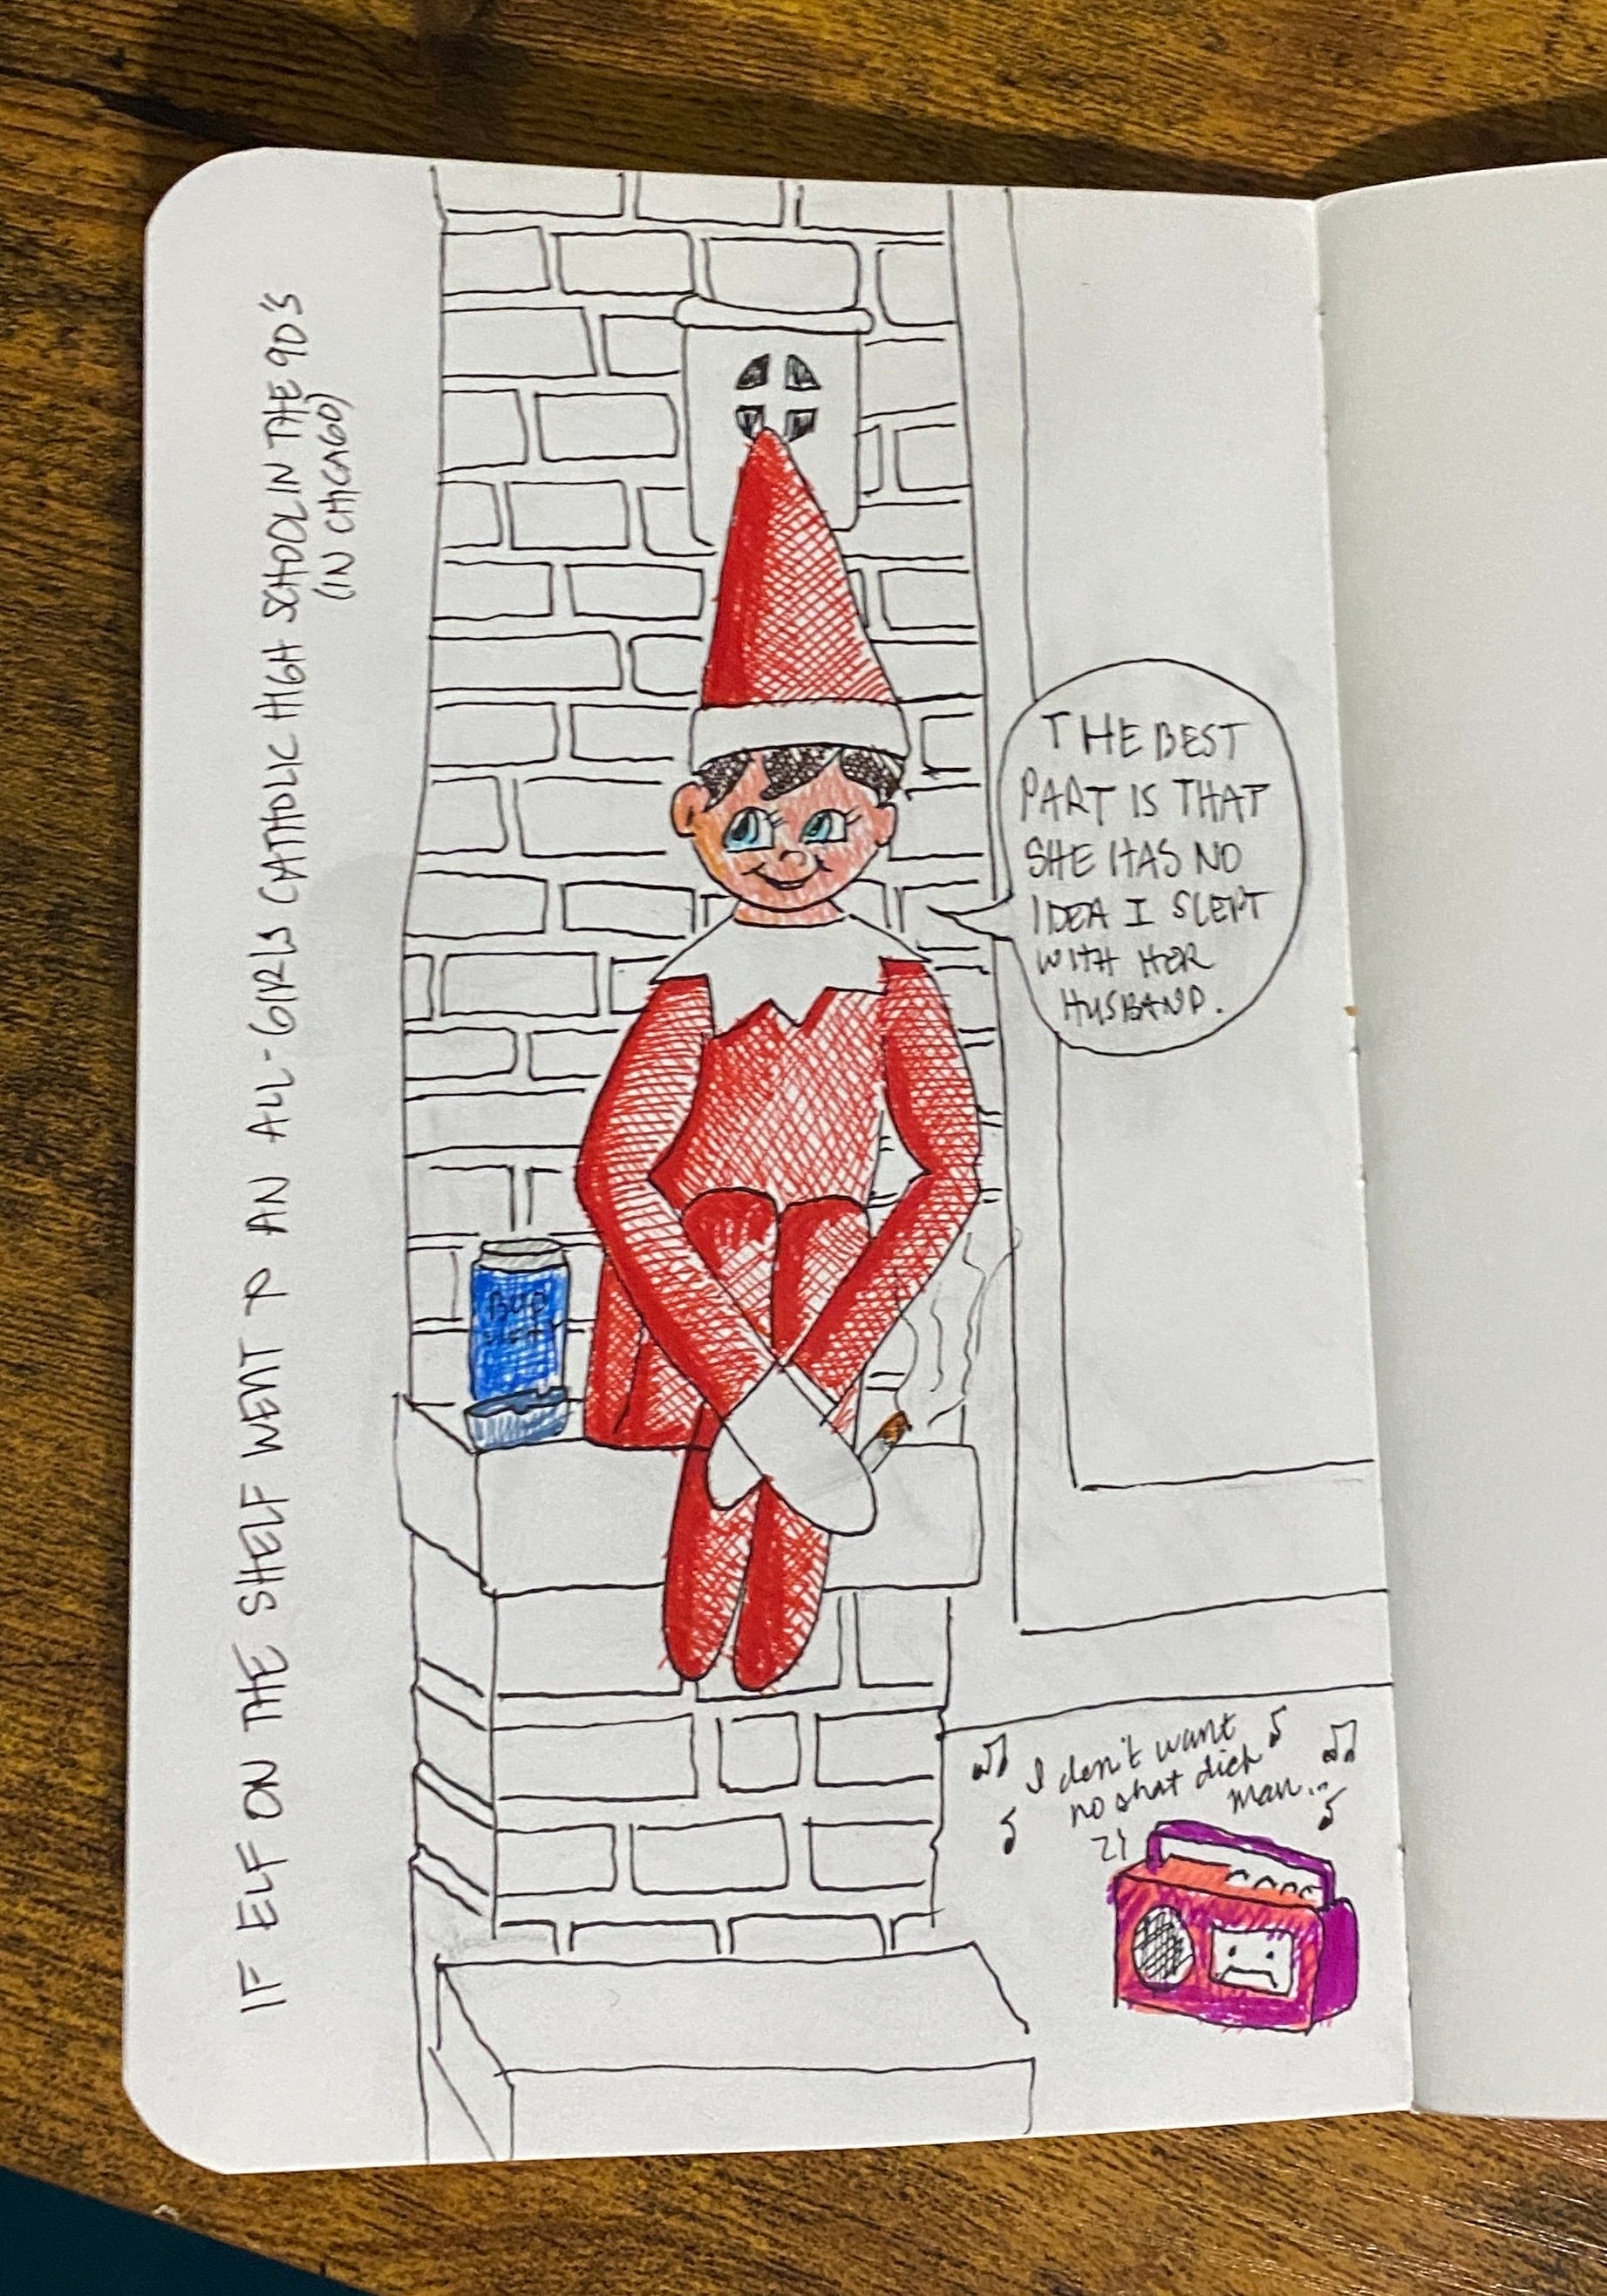 IF ELF ON THE SHELF WENT TO AN ALL-GIRLS CATHOLIC HIGH SCHOOL IN THE 90'S
(IN CHICAGO)
THE BEST
PART IS THAT
SHE HAS NO
IDEA I SLEPT
WITH HER
HUSBAND.
BUD
LIGHT
I don't want
no shat dick
man...